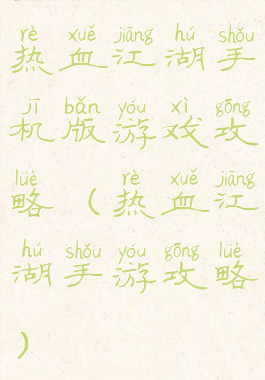 rè xuě jiāng hú shǒu
热血江湖手
jī bǎn yóu xì gōng
机版游戏攻
lüè rè xuě jiāng
略（热血江
hú shǒu yóu gōng lüè
湖手游攻略
）